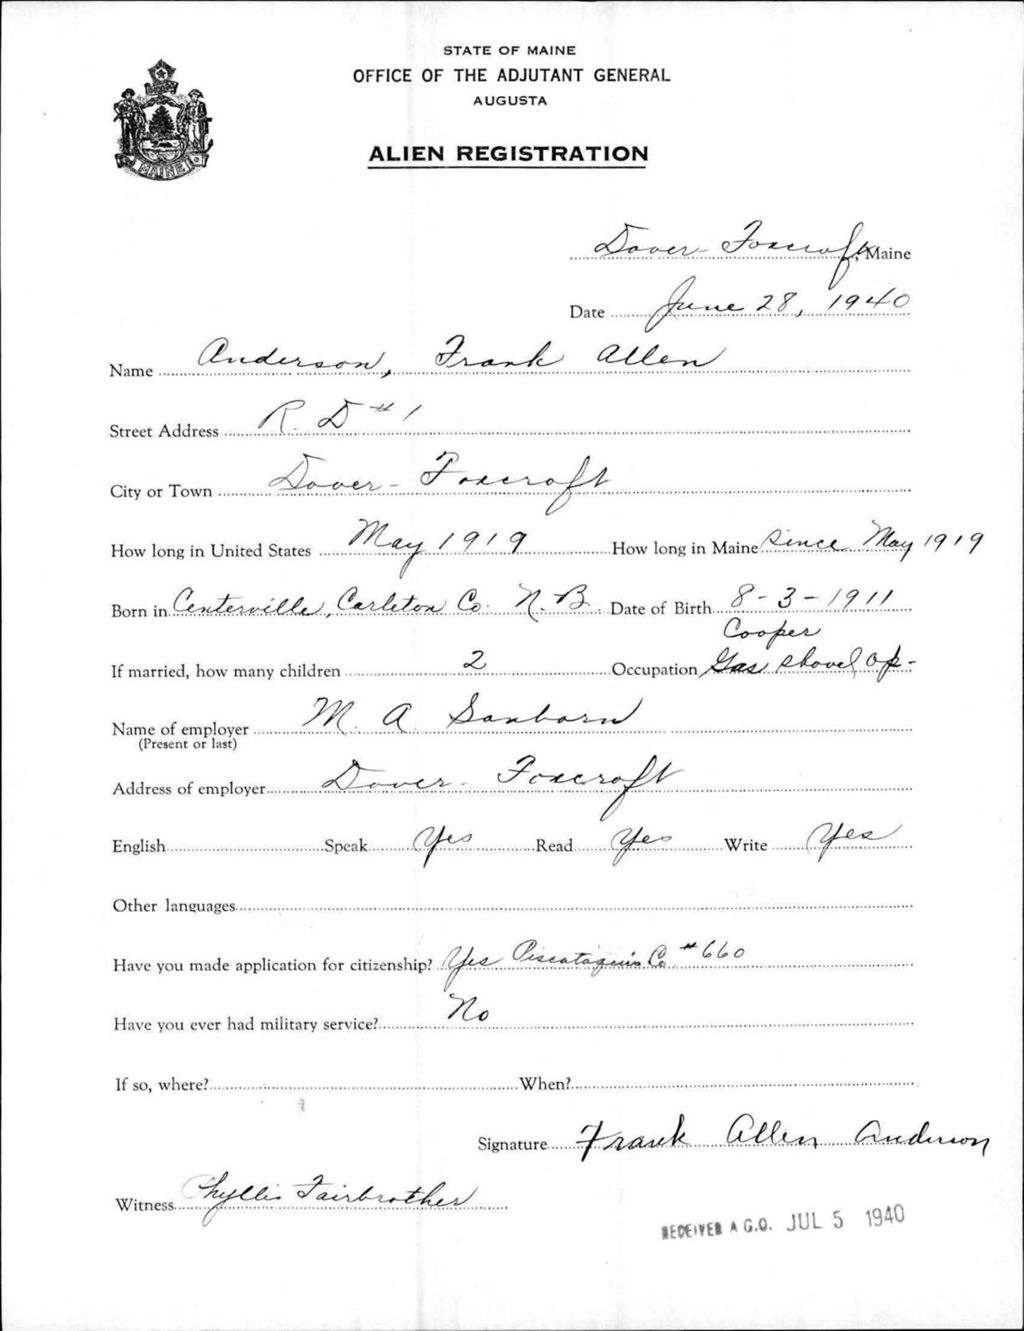 STATE OF MAINE
OFFICE OF THE ADJUTANT GENERAL
AUGUSTA
ALIEN REGISTRATION
MAINE
Dover-Foxcroft, Maine
Date June 28, 1940
Name Anderson, Frank Allen
Street Address R. D #1
City or Town Dover-Foxcroft
How long in United States May 1919 How long in Maine Since May 1919
Born in Centerville, Carleton Co. N.B. Date of Birth 8-3-1911
Cooper
If married, how many children 2 Occupation Gas shovel Op-
Name of employer M. A. Sanborn
(Present or last)
Address of employer Dover-Foxcroft
English Speak Yes Read Yes Write Yes
Other languages
Have you made application for citizenship? Yes Piscataquis Co #660
Have you ever had military service? No
If so, where? When?
Signature Frank Allen Anderson
Witness Phyllis Fairbrother
RECEIVED A.G.O. JUL 5 1940